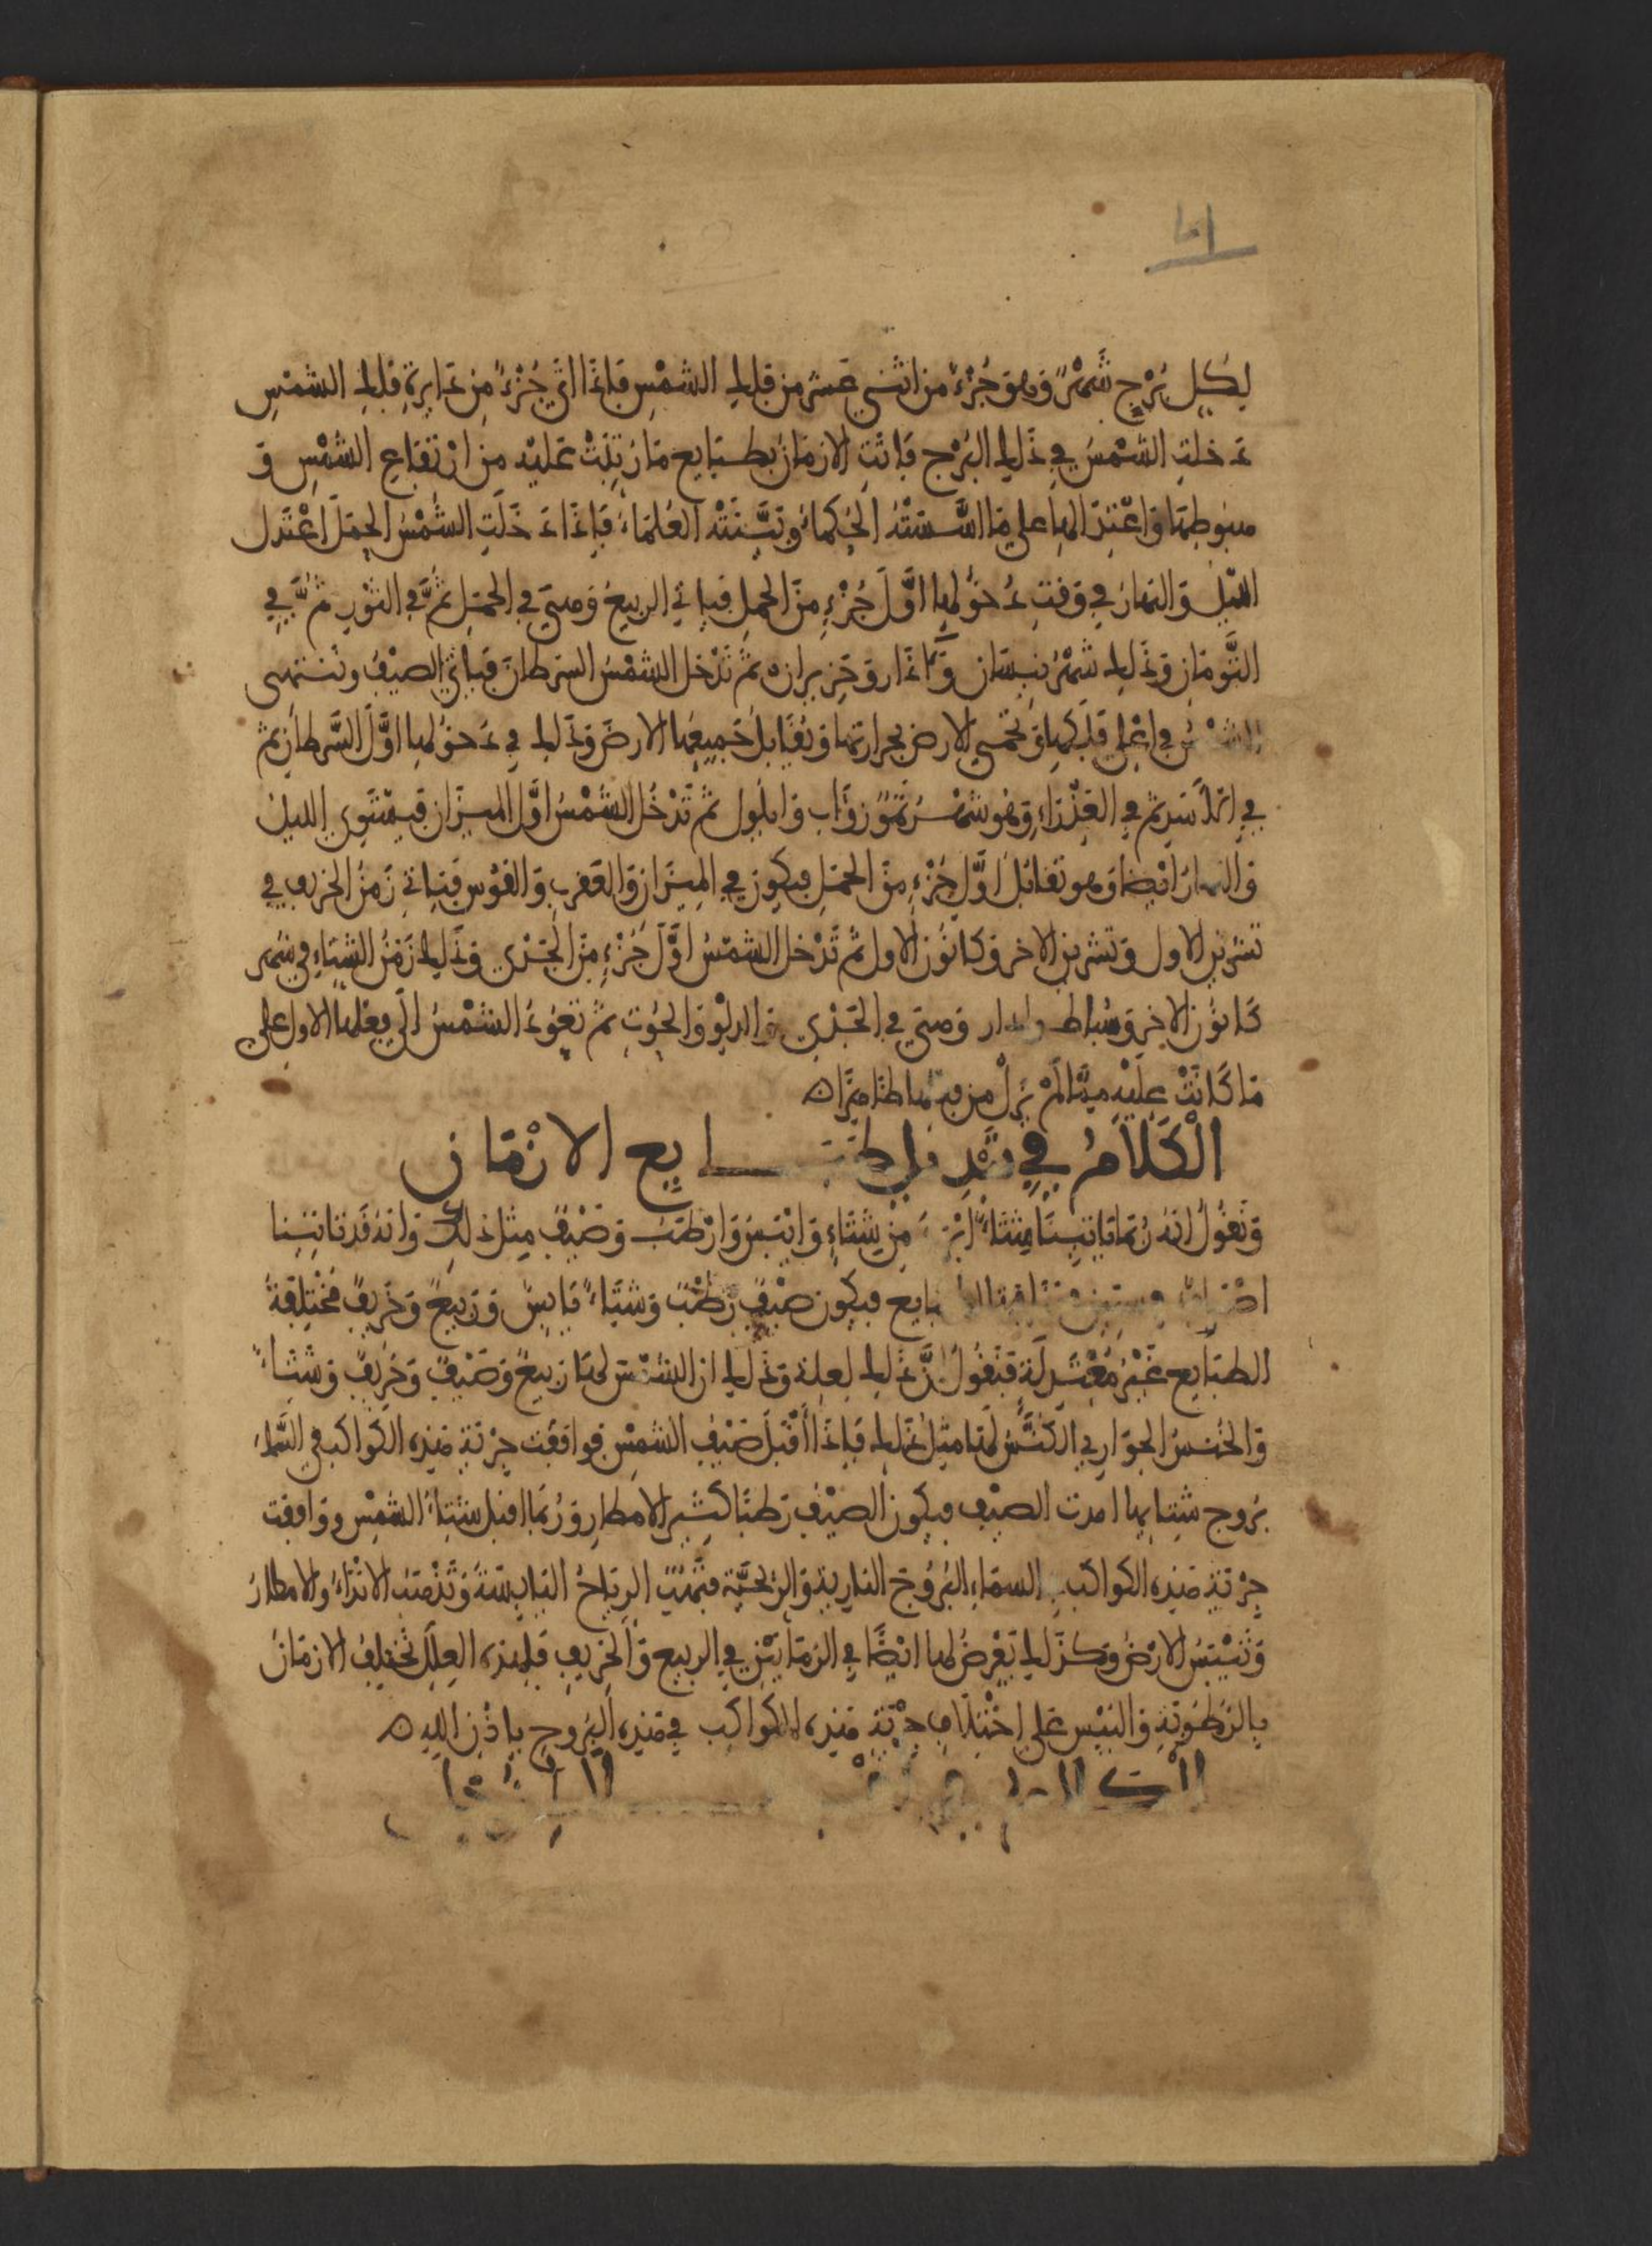 لكل برج شَهْرٌ وهو جُزْءٌ من اثنى عشر من فلك الشمْسِ فاذا اتى جُزْءٌ مِن دَايرةِ فلك الشمْسِ
دخلتِ الشمْسُ في ذلك البُرْج فاتتِ الازمَانُ بطبَايع مَا رُتِبَتْ عَليْهِ مِن ارْتفاعِ الشمْسِ وَ
هبوطهَا وَاعْتِدَالها على مَا اسَّستْهُ الحُكماءُ وبَيَّنَتْه العُلمَاءُ فَاِذَا دَخَلَتِ الشمْسُ الحمَلَ اعْتَدل
الليْلُ وَالنهَارُ في وَقتِ دُخوُلِها اوَّلَ جُزْءٍ مِنَ الحمل فياتي الربيعُ وَهيَ في الحمَلِ ثمَّ في الثوْرِ ثمَّ في
التَّوْمَانِ وَذَلك شهْرُ نيسَان وَءَاذار وَحَزيران ثم تَدْخل الشمْسُ السرَطانَ فيَاتي الصيْفُ وتنتهى
الشمْسُ في اعْلى فلكها وَتحْمى الارض بحرارتها وَتُقَابلُ جَميعُها الارضَ وَذَلك في دخوُلها اوَّلَ السَّرطانِ ثم
في الاَسَدِ ثم في العَذْرَاءِ وَهُو شهْرُ تمّوُز وَآب وَايلُول ثمَّ تَدْخُل الشمْسُ اوَّل الميزَان فيسْتَوِي الليلُ
وَالنهارُ ايْضا وَهو تُقابلُ اوَّل جُزْءٍ مِنَ الحمَلِ فيكون في الميزَان وَالعَقرب وَالقوْسِ فيَاتي زَمنُ الخريف في
تشرين الاول وَتشرين الاخر وَكانوُن الاول ثمَّ تَدْخل الشمْسُ اوَّلَ جُزْءٍ مِنَ الجَدْي وَذَلك زَمَنُ الشتَاءِ في شهر
كَانوُن الاخر وَشباط وادار وَهيَ في الجَدْي وَالدلْوِ وَالحُوُتِ ثمَّ تعوُدُ الشمْسُ الى فِعْلها الاول على
مَا كَانَتْ عليْهِ
الْكَلاَمُ فِي تبْدِيل طبَايع الازْمَان
وَنَقُولُ انهُ رُبمَا يَاتينَا شِتَاءٌ مِنْ شِتَاءٍ وَايْبسَ وَارْطبَ وَصَيْفٌ مِثل ذلك وَانهُ قَد يَاتينا
بايع فيكون صيْفٌ رَطْبٌ وَشتَاءٌ يَابِسٌ وَرَبيعٌ وَخَريفٌ مُخْتَلِفةُ
الطبَايع غيْرُ مُعْتَدِلَةٍ فَنَقُولُ اِنَّ ذَلك لعِلة وَذَلك ان الشمْسَ لهَا رَبيعٌ وَصَيْفٌ وَخَرِيفٌ وَشتَاءٌ
وَالخُنسُ الجوَارِي الكُنَّسُ لهَا مثلُ ذَلك فَاِذَا أَقْبَلَ صَيْفُ الشمْسِ فوَافقت جِرْيَةِ هَذِهِ الكَواكب في السَّماءِ
بُرُوج شتايها امدت الصيْف فيكون الصيْفُ رَطبًا كَثير الامطارِ وَرُبمَا اقبل شتاءُ الشمْسِ وَوَافقت
جِرْيَةِ هَذِهِ الكواكب السمَاءِ البُرُوُجَ النارية وَالرِّيحيَّة فتَهُبُّ الرِيَاحُ اليَابسَة وَتَذْهَبُ الانْدَاءُ وَالامطارُ
وَتَيْبَسُ الارْضُ وَكذَلك يَعْرِضُ لها ايْضًا في الزمَانيْن في الربيع وَالخريف فلهذه العِلل تختلِفُ الازمَانُ
بالرُطوُبَةِ وَاليبْسِ عَلى اِخْتِلاَفِ جِرْيَةِ هَذِهِ الكواكب في هَذِهِ البُرُوجِ بِاِذْنِ اللهِ